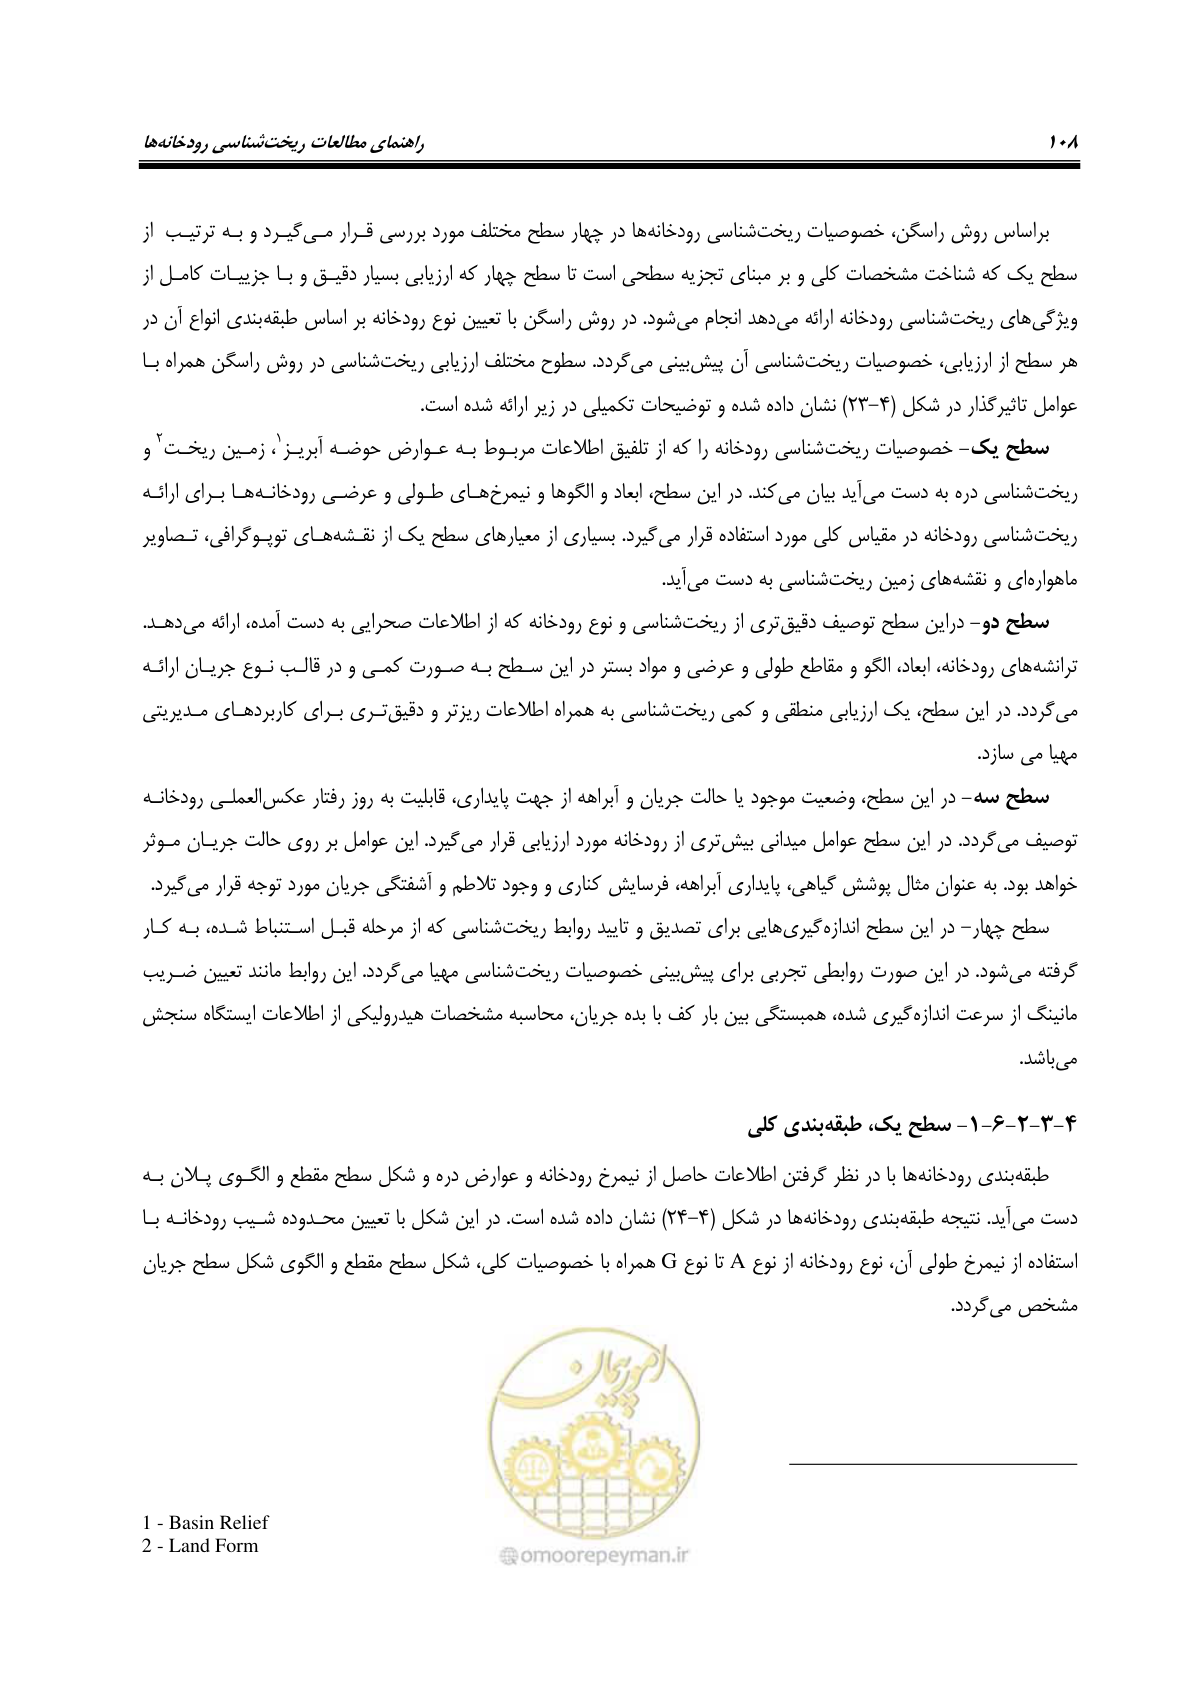 ۱۰۸ راهنمای مطالعات ریخت‌شناسی رودخانه‌ها
براساس روش راسگن، خصوصیات ریخت‌شناسی رودخانه‌ها در چهار سطح مختلف مورد بررسی قرار می‌گیرد و به ترتیب از
سطح یک که شناخت مشخصات کلی و بر مبنای تجزیه سطحی است تا سطح چهار که ارزیابی بسیار دقیق و با جزییات کامل از
ویژگی‌های ریخت‌شناسی رودخانه ارائه می‌دهد انجام می‌شود. در روش راسگن با تعیین نوع رودخانه بر اساس طبقه‌بندی انواع آن در
هر سطح از ارزیابی، خصوصیات ریخت‌شناسی آن پیش‌بینی می‌گردد. سطوح مختلف ارزیابی ریخت‌شناسی در روش راسگن همراه با
عوامل تاثیرگذار در شکل (۴-۲۳) نشان داده شده و توضیحات تکمیلی در زیر ارائه شده است.
سطح یک- خصوصیات ریخت‌شناسی رودخانه را که از تلفیق اطلاعات مربوط به عوارض حوضه آبریز۱، زمین ریخت۲ و
ریخت‌شناسی دره به دست می‌آید بیان می‌کند. در این سطح، ابعاد و الگوها و نیمرخ‌های طولی و عرضی رودخانه‌ها برای ارائه
ریخت‌شناسی رودخانه در مقیاس کلی مورد استفاده قرار می‌گیرد. بسیاری از معیارهای سطح یک از نقشه‌های توپوگرافی، تصاویر
ماهواره‌ای و نقشه‌های زمین ریخت‌شناسی به دست می‌آید.
سطح دو- دراین سطح توصیف دقیق‌تری از ریخت‌شناسی و نوع رودخانه که از اطلاعات صحرایی به دست آمده، ارائه می‌دهد.
ترانشه‌های رودخانه، ابعاد، الگو و مقاطع طولی و عرضی و مواد بستر در این سطح به صورت کمی و در قالب نوع جریان ارائه
می‌گردد. در این سطح، یک ارزیابی منطقی و کمی ریخت‌شناسی به همراه اطلاعات ریزتر و دقیق‌تری برای کاربردهای مدیریتی
مهیا می سازد.
سطح سه- در این سطح، وضعیت موجود یا حالت جریان و آبراهه از جهت پایداری، قابلیت به روز رفتار عکس‌العملی رودخانه
توصیف می‌گردد. در این سطح عوامل میدانی بیش‌تری از رودخانه مورد ارزیابی قرار می‌گیرد. این عوامل بر روی حالت جریان موثر
خواهد بود. به عنوان مثال پوشش گیاهی، پایداری آبراهه، فرسایش کناری و وجود تلاطم و آشفتگی جریان مورد توجه قرار می‌گیرد.
سطح چهار- در این سطح اندازه‌گیری‌هایی برای تصدیق و تایید روابط ریخت‌شناسی که از مرحله قبل استنباط شده، به کار
گرفته می‌شود. در این صورت روابطی تجربی برای پیش‌بینی خصوصیات ریخت‌شناسی مهیا می‌گردد. این روابط مانند تعیین ضریب
مانینگ از سرعت اندازه‌گیری شده، همبستگی بین بار کف با بده جریان، محاسبه مشخصات هیدرولیکی از اطلاعات ایستگاه سنجش
می‌باشد.
۴-۳-۲-۶-۱- سطح یک، طبقه‌بندی کلی
طبقه‌بندی رودخانه‌ها با در نظر گرفتن اطلاعات حاصل از نیمرخ رودخانه و عوارض دره و شکل سطح مقطع و الگوی پلان به
دست می‌آید. نتیجه طبقه‌بندی رودخانه‌ها در شکل (۴-۲۴) نشان داده شده است. در این شکل با تعیین محدوده شیب رودخانه با
استفاده از نیمرخ طولی آن، نوع رودخانه از نوع A تا نوع G همراه با خصوصیات کلی، شکل سطح مقطع و الگوی شکل سطح جریان
مشخص می‌گردد.
امور پیمان
1 - Basin Relief
2 - Land Form
omoorepeyman.ir